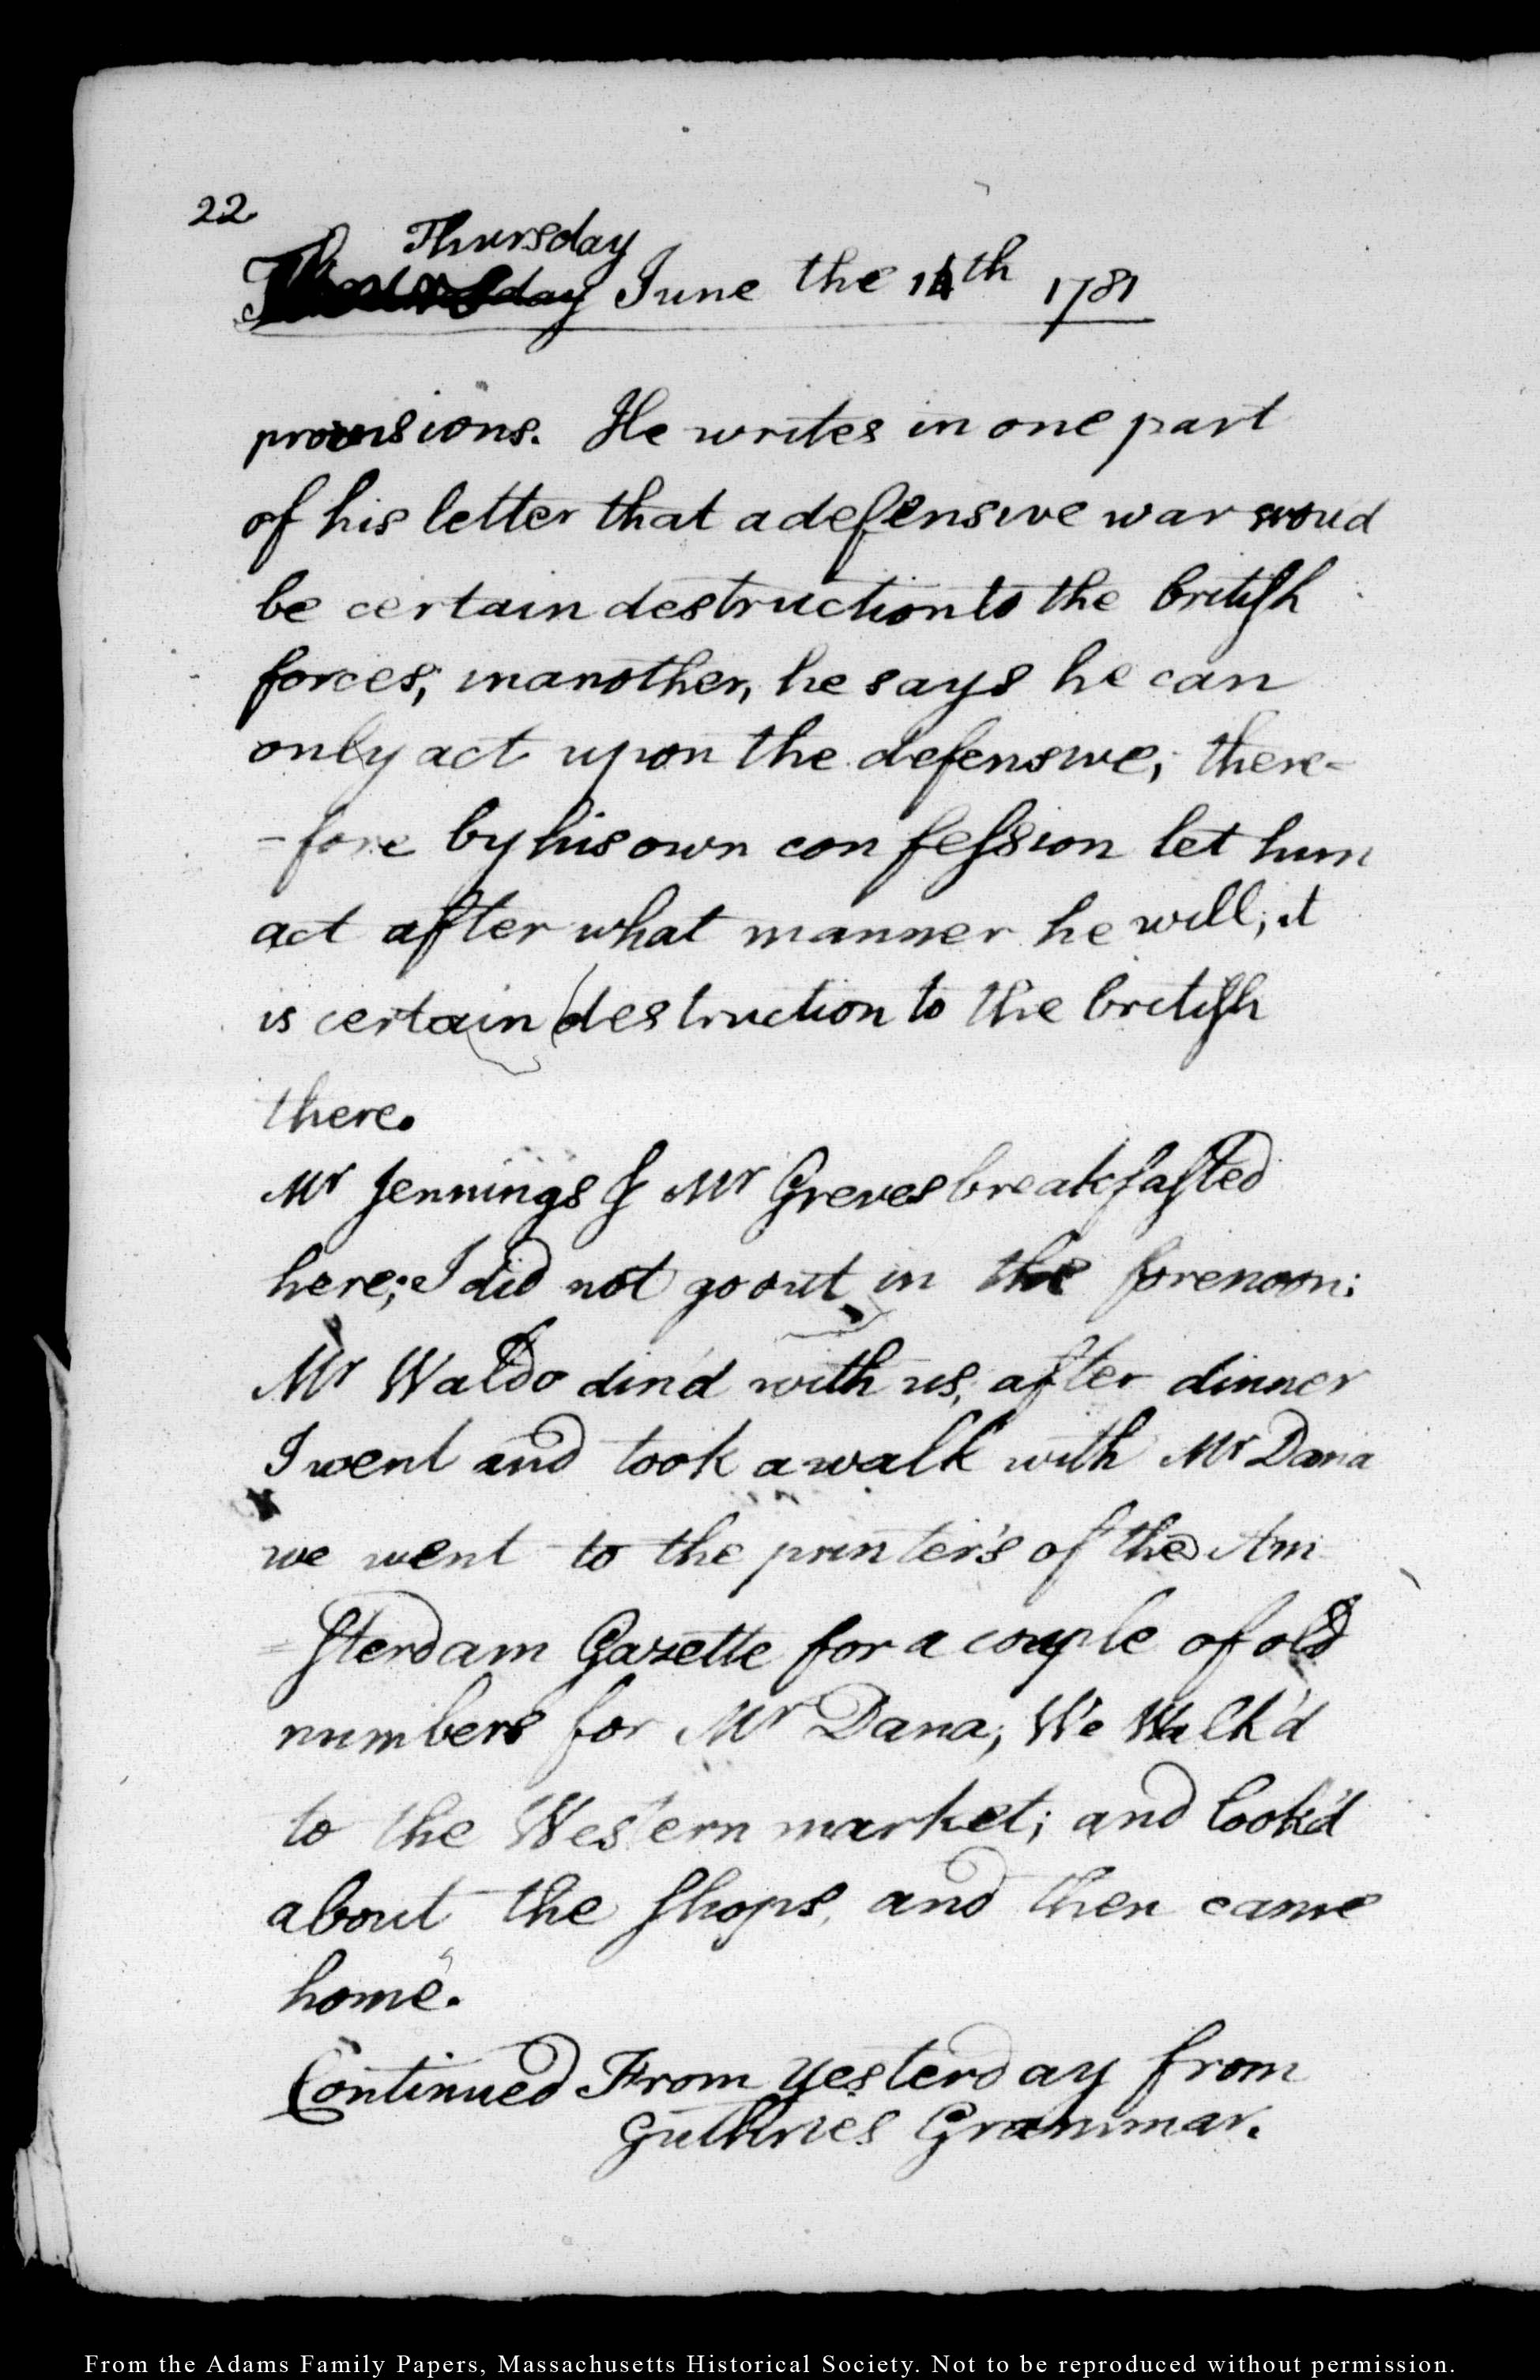 22
Thursday
June the 14th 1781
provisions. He writes in one part
of his letter that a defensive war woud
be certain destruction to the british
forces; in another, he says he can
only act upon the defensive; there=
=fore by his own confession let him
act after what manner he will; it
is certain destruction to the british
there.
Mr Jennings & Mr Greves breakfasted
here; I did not go out in the forenoon:
Mr Waldo din'd with us; after dinner
I went and took a walk with Mr Dana
we went to the printer's of the Am
=sterdam Gazette for a couple of old
numbers for Mr Dana; We Walk'd
to the Western market; and look'd
about the shops, and then came
home.
Continued From yesterday from
Guthries Grammar.
From the Adams Family Papers, Massachusetts Historical Society. Not to be reproduced without permission.